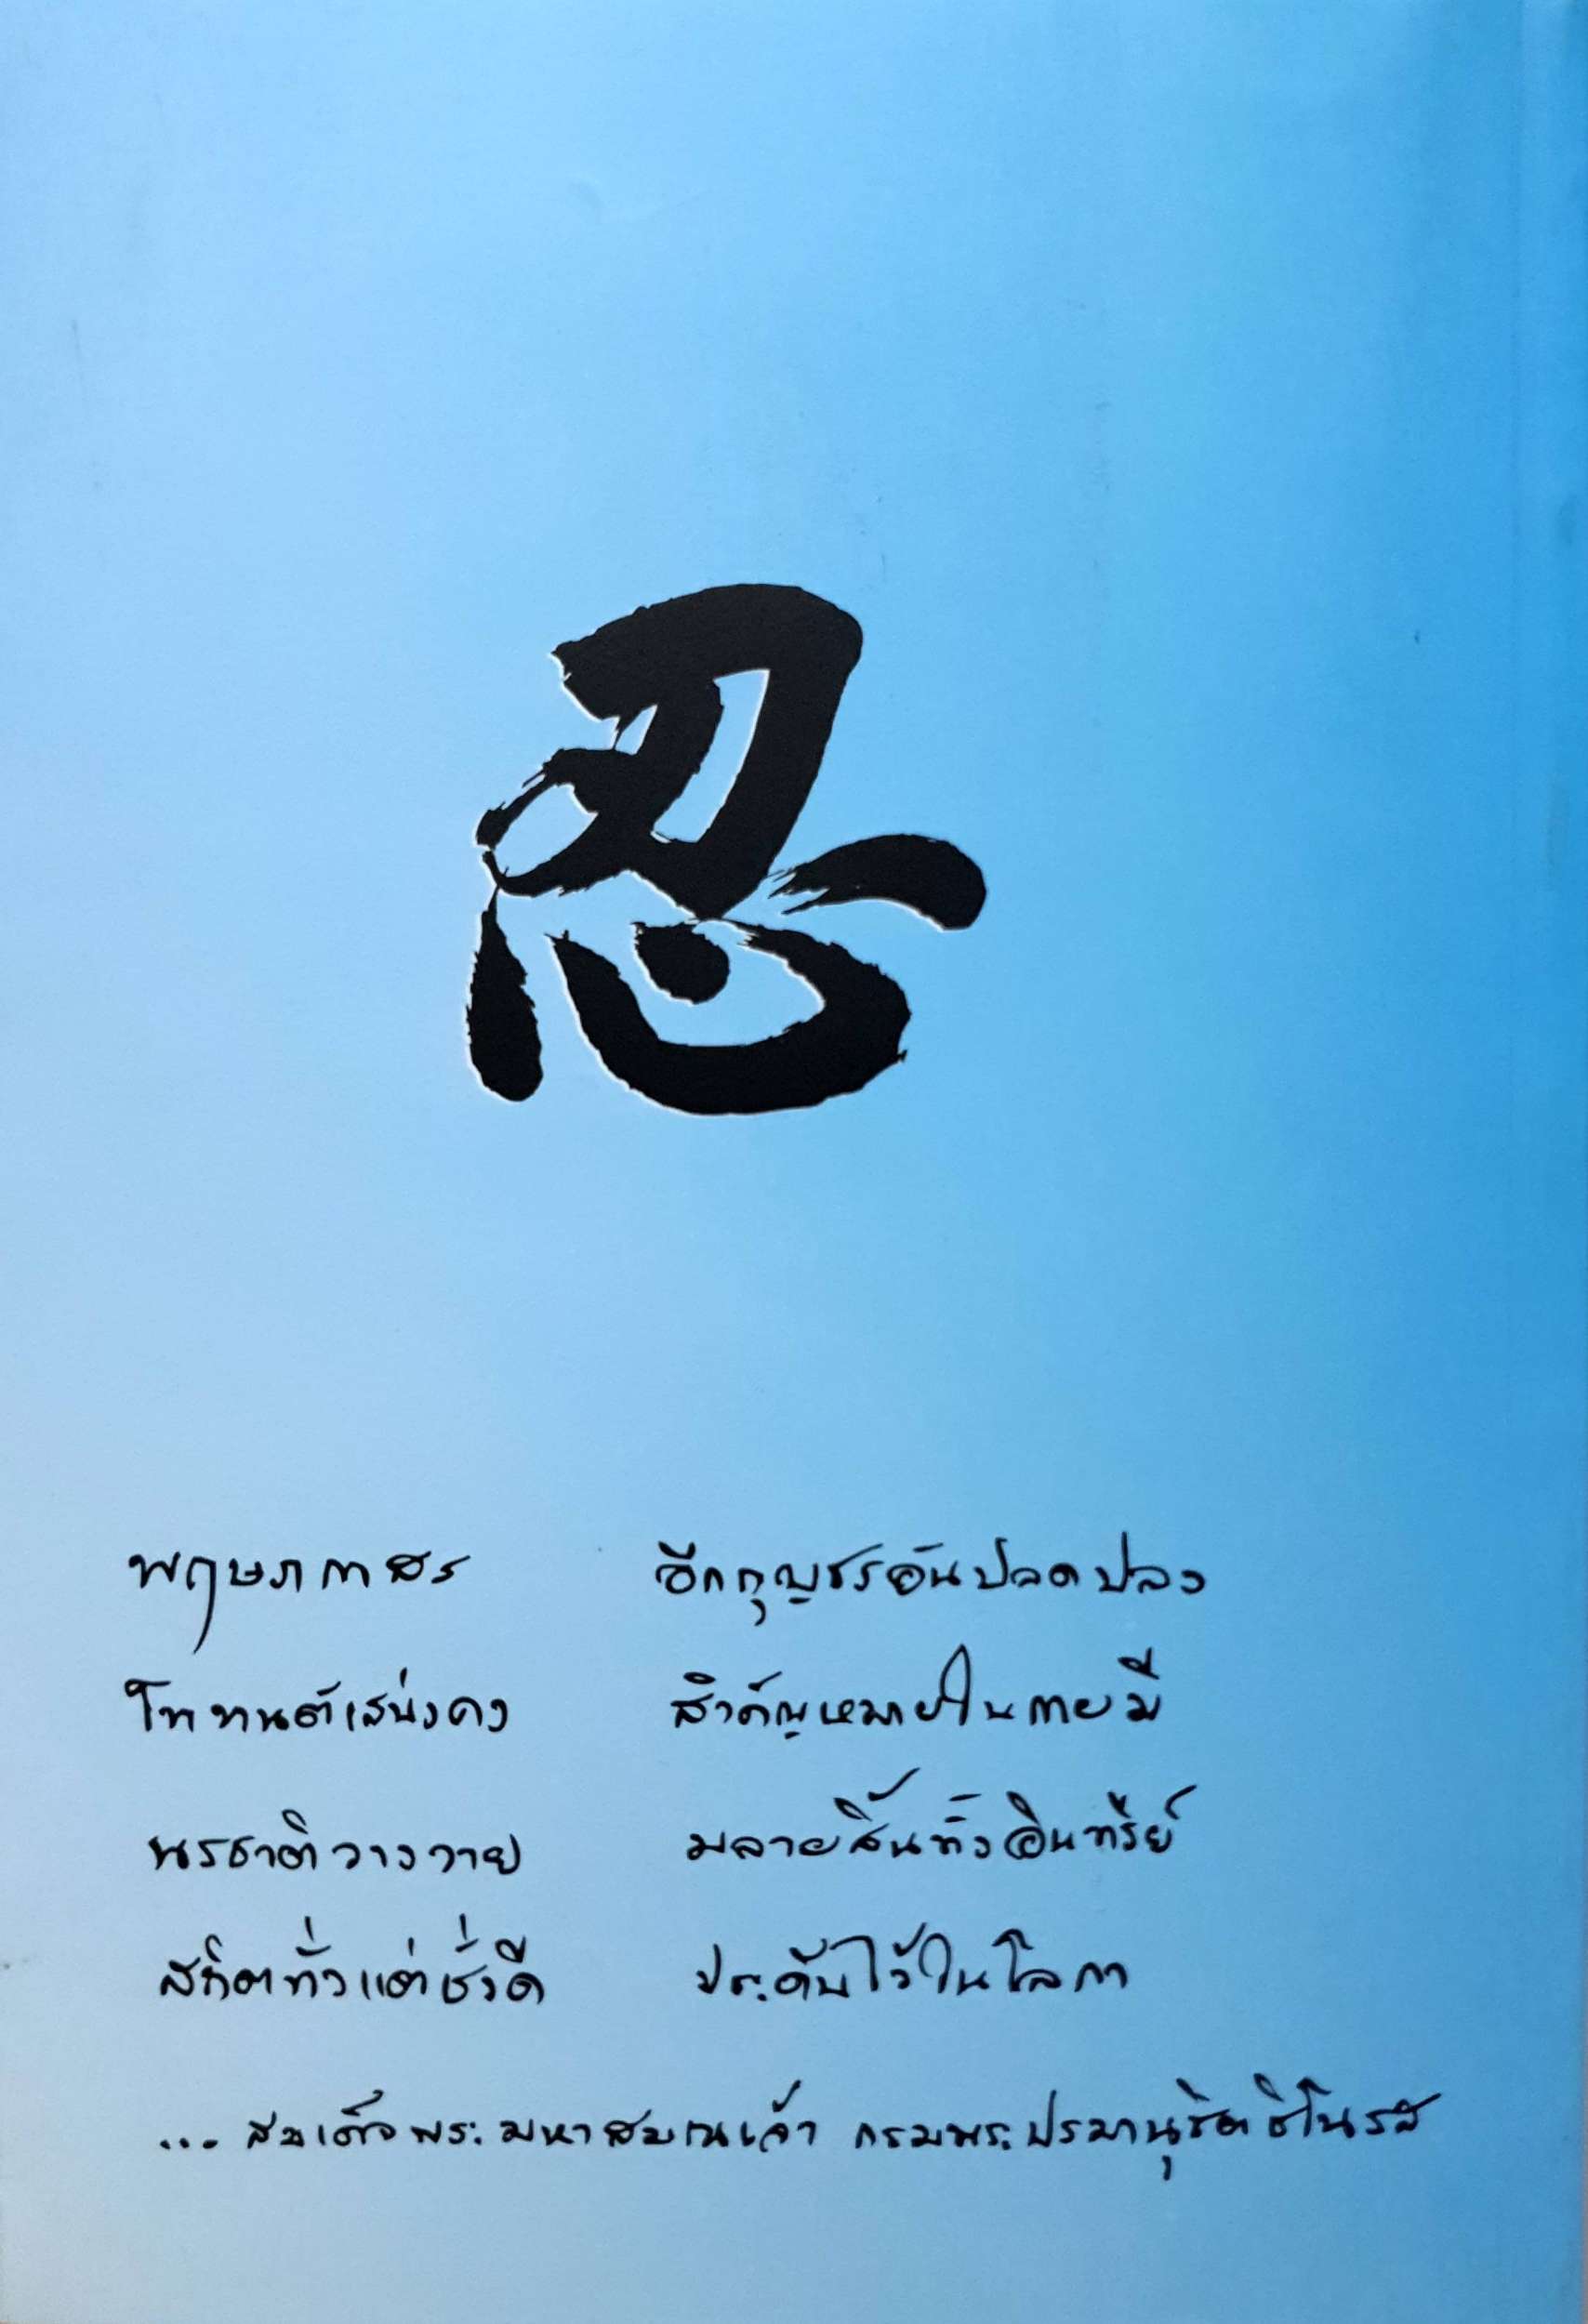 忍
พฤษภกาสร อีกกุญชรอันปลดปลง
โททนต์เสน่งคง สำคัญหมายในกายมี
นรชาติวางวาย มลายสิ้นทั้งอินทรีย์
สถิตทั่วแต่ชั่วดี ประดับไว้ในโลกา
... สมเด็จพระมหาสมณเจ้า กรมพระปรมานุชิตชิโนรส